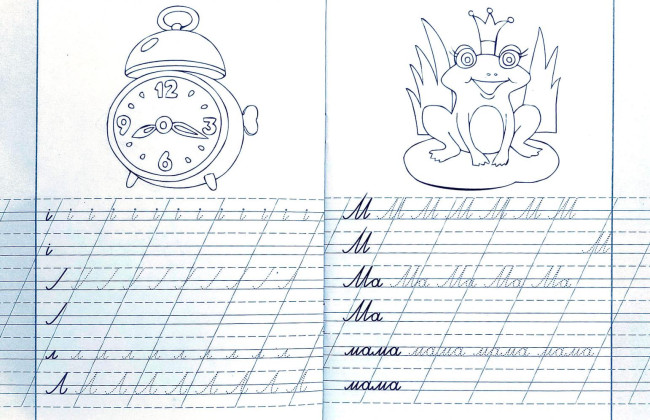 12
9 3
6
і і і і і і і і і і і і і
і
л л л л л л л л л л л
Л Л Л Л Л Л Л Л Л
М М М М М М М
М М
Ма Ма Ма Ма Ма
Ма
мама мама мама мама
мама